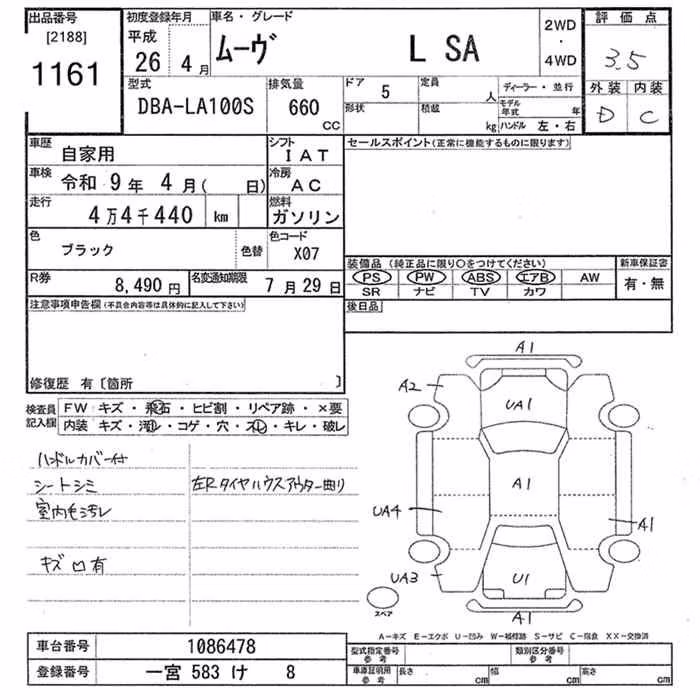 出品番号
[2188]
1161
初度登録年月
平成
26 4月
車名・グレード
ムーヴ L SA
2WD
・
4WD
評価点
3.5
外装 内装
D C
型式
DBA-LA100S
排気量
660
CC
ドア 5
形状
定員 人
積載 kg
ディーラー・並行
モデル年式 年
ハンドル 左・右
車歴
自家用
シフト
IAT
車検 令和 9年 4月( 日)
冷房
AC
走行
4万4千440 km
燃料
ガソリン
色
ブラック
色替
色コード
X07
R券
8,490円
名変通知期限
7月29日
セールスポイント(正常に機能するものに限ります)
装備品 (純正品に限り○をつけてください)
PS PW ABS エアB AW
SR ナビ TV カワ
新車保証書
有・無
後日品
注意事項申告欄(不具合内容等は具体的に記入して下さい)
修復歴 有〔箇所 〕
検査員
記入欄
FW キズ・飛石・ヒビ割・リペア跡・×要
内装 キズ・汚れ・コゲ・穴・スレ・キレ・破レ
ハンドルカバー付
シートシミ
室内モ汚レ
キズ凹有
左Rタイヤハウスアウター曲り
A1
A2
UA1
A1
UA4
A1
UA3
U1
A1
スペア
A-キズ E-エクボ U-凹み W-補修跡 S-サビ C-腐食 XX-交換済
車台番号 1086478
登録番号 一宮 583 け 8
型式指定番号
参考
類別区分番号
参考
車庫証明用
参考
長さ cm
幅 cm
高さ cm